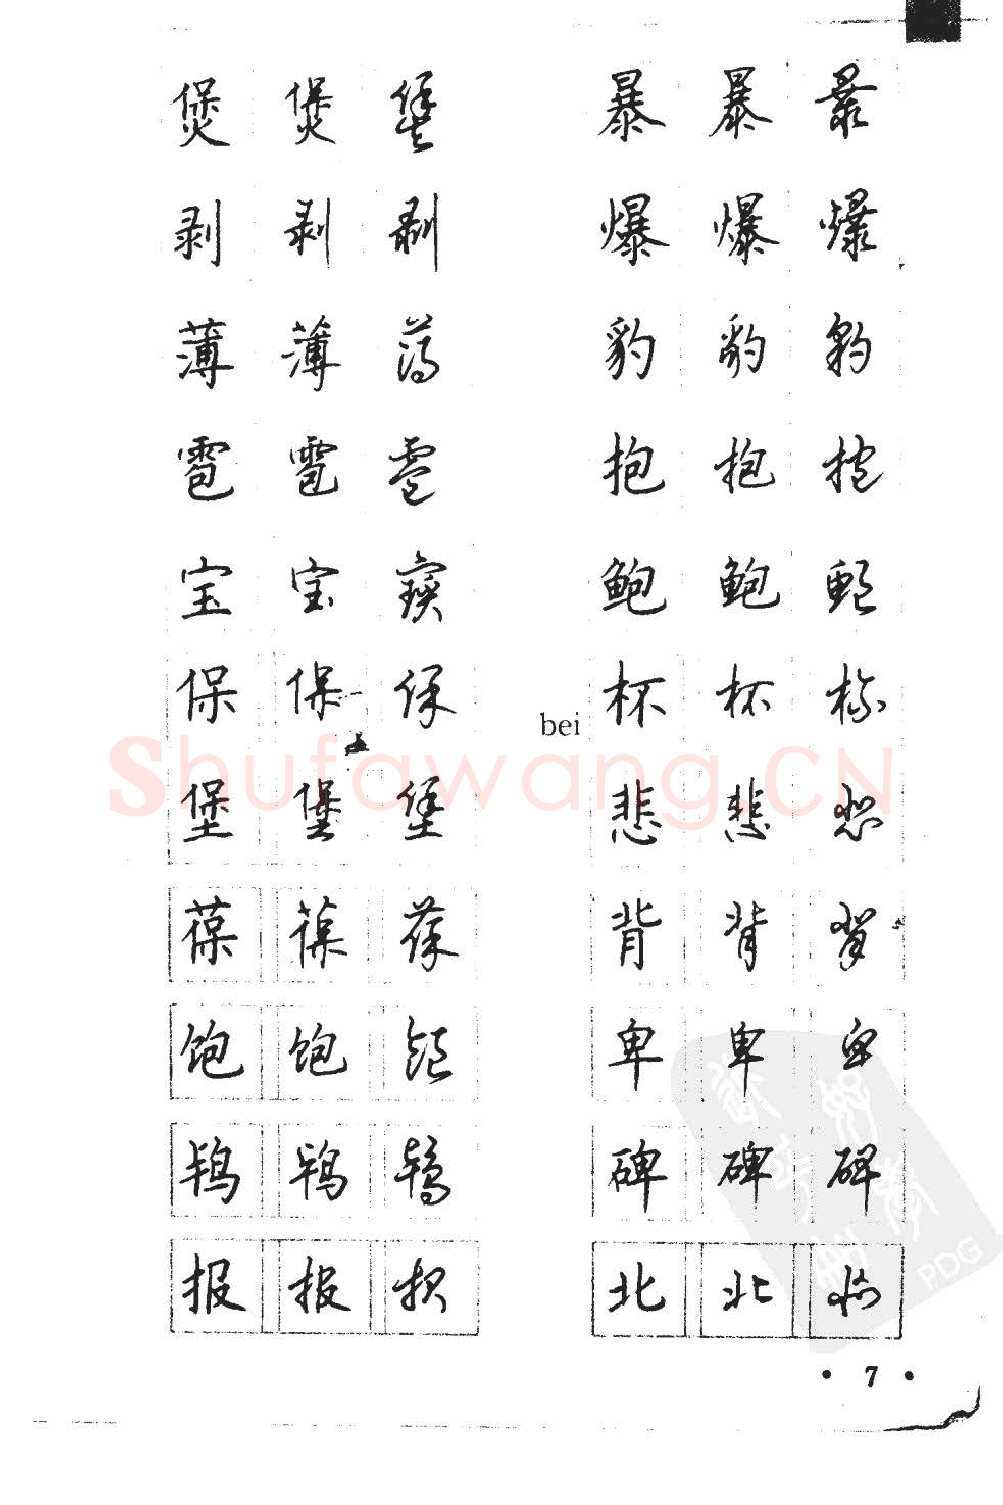 煲 煲 煲 暴 暴 暴
剥 剥 剥 爆 爆 爆
薄 薄 薄 豹 豹 豹
雹 雹 雹 抱 抱 抱
宝 宝 寶 鲍 鲍 鲍
保 保 保 bei 杯 杯 杯
堡 堡 堡 悲 悲 悲
葆 葆 葆 背 背 背
饱 饱 饱 卑 卑 卑
鸨 鸨 鸨 碑 碑 碑
报 报 报 北 北 北
• 7 •
Shufawang.CN
PDG